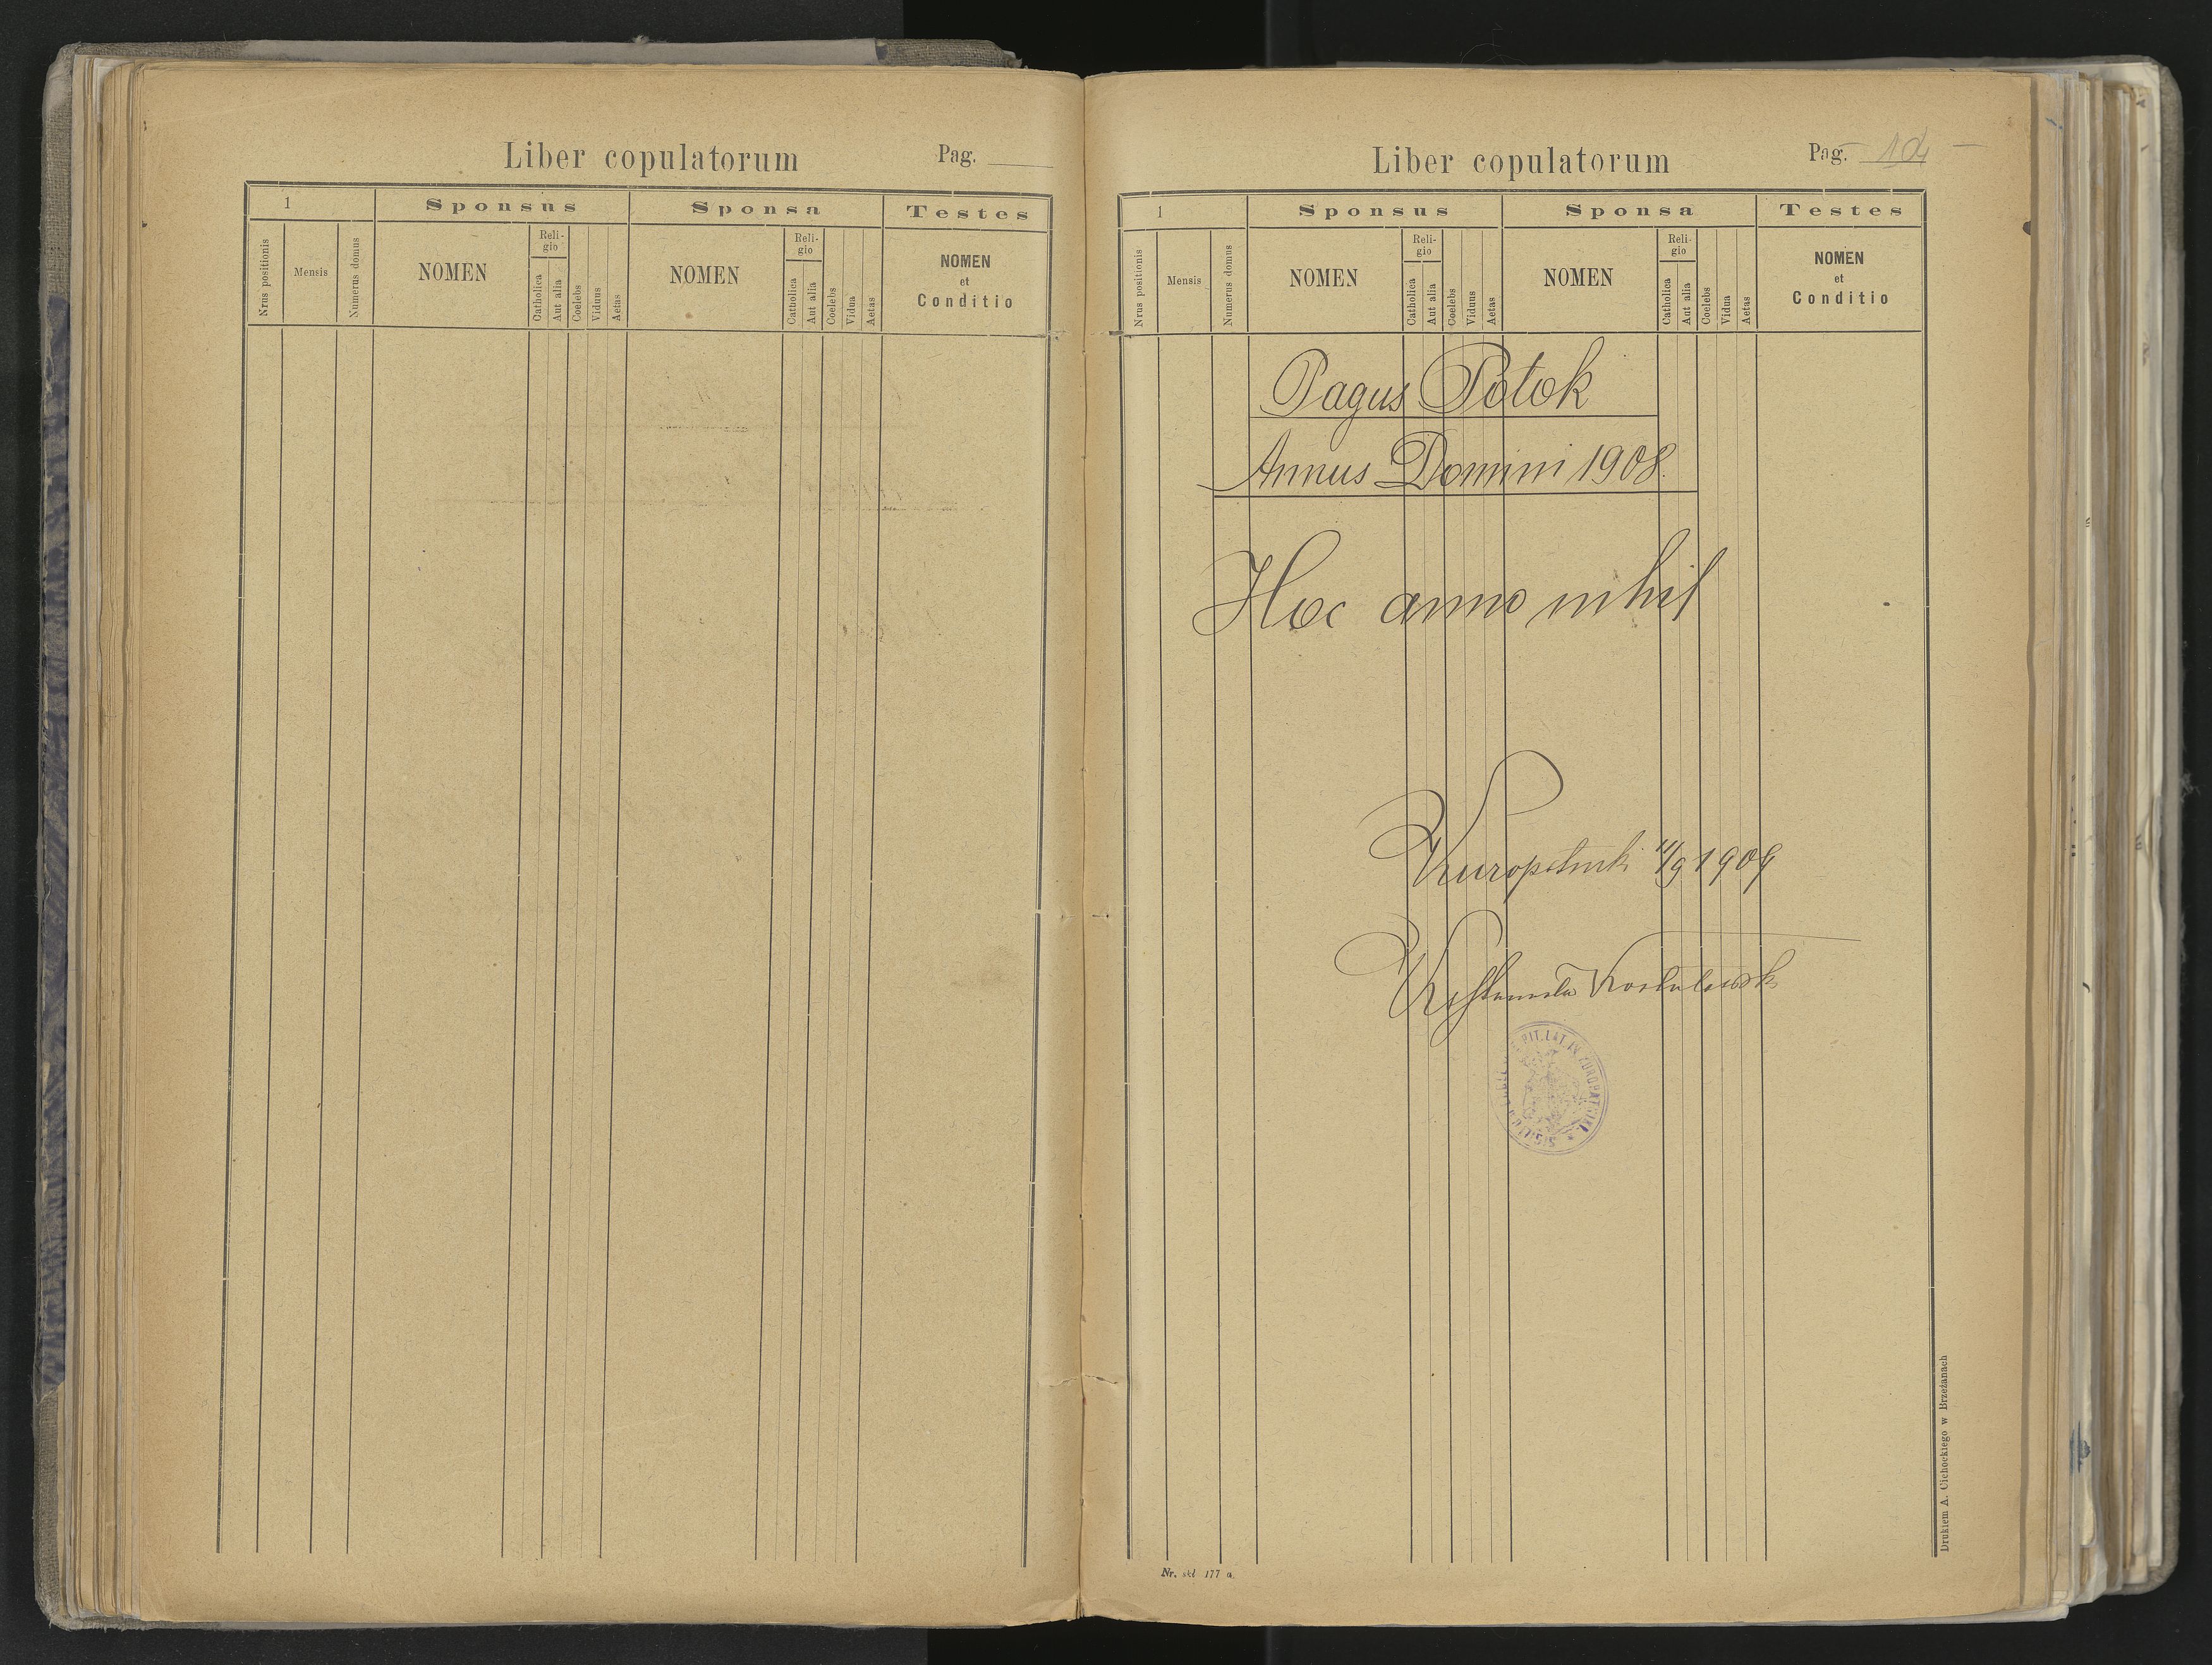 Liber copulatorum Pag.
1 Sponsus Sponsa Testes
Nrus positionis Mensis Numerus domus NOMEN Reli-gio Catholica Aut alia Coelebs Viduus Aetas NOMEN Reli-gio Catholica Aut alia Coelebs Vidua Aetas NOMEN et Conditio
Liber copulatorum Pag. 104
1 Sponsus Sponsa Testes
Nrus positionis Mensis Numerus domus NOMEN Reli-gio Catholica Aut alia Coelebs Viduus Aetas NOMEN Reli-gio Catholica Aut alia Coelebs Vidua Aetas NOMEN et Conditio
Pagus Potok
Annus Domini 1908.
Hoc anno nihil
1909
RIT. LAT. IN KUROPATNIKI
Nr. skł 177 a.
Drukiem A. Cichockiego w Brzeżanach